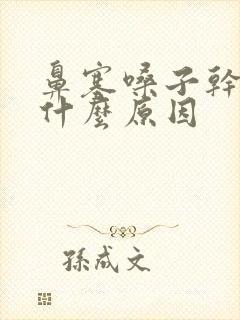 鼻塞嗓子幹
什麼原因
孫成文